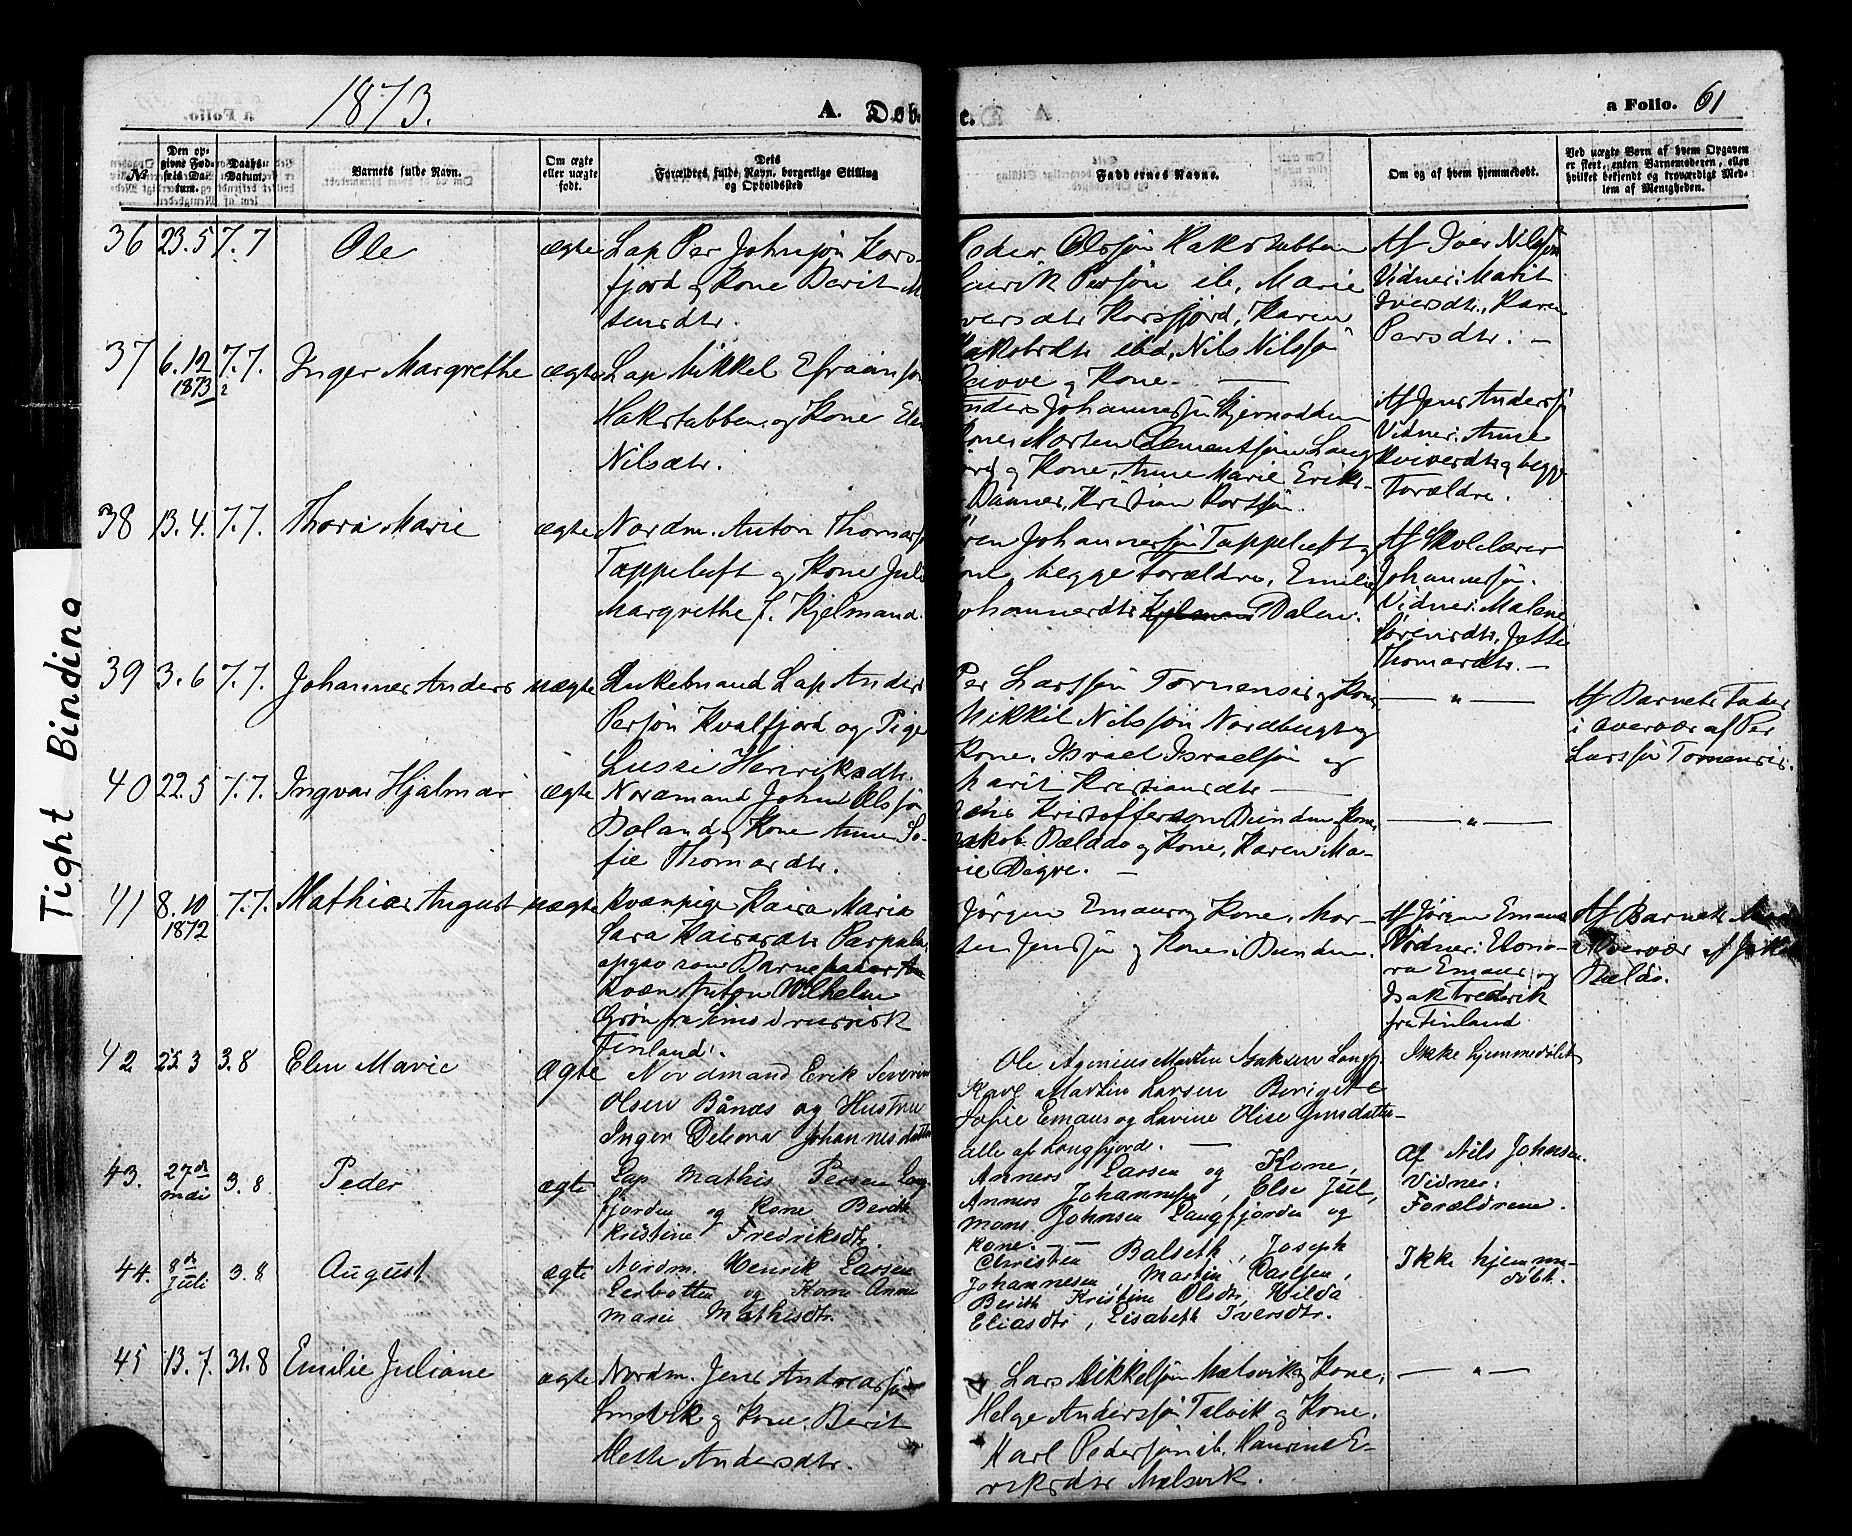 1873.
A. Døb
e.
a Folio. 61
No.
Den opgivne Fødsels Datum.
Daabs-Datum.
Barnets fulde Navn.
Om ægte eller uægte født.
Dets Forældres fulde Navn, borgerlige Stilling og Opholdssted
Faddernes Navne.
Om og af hvem hjemmedøbt.
Ved uægte Børn af hvem Opgaven er skeet, enten Barnemoderen, eller hvilket bekjendt og troværdigt Medlem af Menigheden.
36 23.5 7.7 Ole ægte
Lap Per Johnsøn Kors-
fjord og Kone Berit M
tensdtr.
Peder Olssøn Hakstabben
Persøn ib. Marie
versdtr Korsfjord, Karen
Jakobsdtr ibid, Nils Nilssøn
og Kone. —
Af Iver Nilssøn
Vidner: Marit
Iversdtr., Karen
Persdtr. —
37 6.12 1873 7.7. Inger Margrethe ægte
Lap Mikkel Efraimsøn
Hakstabben og Kone Elen
Nilsdtr.
Anders Johannessøn
Kone, Morten Clementsøn Lang
fjord og Kone, Anne Marie Eriks-
Kristian
Af Jens Anderssøn
Vidner: Anne
og begge
Forældre.
38 13.4. 7.7. Thora Marie ægte
Nordm. Anton Thomassøn
Tappeluft og Kone Juli
Margrethe f. Kjelmand.
ren Johannessøn Tappeluft og
Kone, begge Forældre, Emilie
Johannesdtr Dalen.
Af Skolelærer
Johannessøn.
Vidner: Malene
Sørensdtr, Jette
Thomasdtr. —
39 3.6 7.7. Johannes Anders uægte
Enkemand Lap Anders
Persøn Kvalfjord og Pige
Lussi Henriksdtr.
Per Larssøn Tornensis og Kone
Mikkil Nilssøn Nordbugt og
Kone, Israel Israelsøn og
Marit Kristiansdtr —
— " —
Af Barnets Fader
i Overvær af Per
Larssøn Tornensis.
40 22.5 7.7. Ingvar Hjalmar ægte
Nordmand John Olssøn
Doland og Kone Anne So-
fie Thomasdtr.
Kristofferson og Kone,
Jakob Bælddo og Kone, Karen Ma-
rie Digre. —
— " —
41 8.10 1872 7.7. Mathias August uægte
Kvænpige Kaisa Maria
Sara
opgav som Barnefader
Kvæn Anton Wilhelm
Grøn fra i russisk
Finland.
Jørgen Emaus og Kone, Mor-
ten Jenssøn og Kone i
Af Jørgen Emaus
Vidner: Elono-
ra Emaus og
Isak Fredrik
fra Finland
Af Barnets
i Overvær af
Baldo.
42 25.3 3.8 Elen Marie ægte
Nordmand Erik Severin
Olsen Bånæs og Hustru
Inger Johannesdatter
Ole Martin Isaksen Langfj.
Karl Martin Larsen
Sofie Emaus og Lavine Olise Jensdatter
alle af Langfjord. —
Ikke hjemmedøbt
43. 27de mai 3.8 Peder ægte
Lap Mathis Persen Lang
fjorden og Kone Berith
Kristine Fredriksdtr.
Anners Larsen og Kone,
Anners Johannesen, Else Juul,
Mons Johnsen Langfjorden og
Kone. —
Af Nils Johnsen.
Vidner:
Forældrene.
44. 8de Juli 3.8 August ægte
Nordm. Henrik Larsen
Leirbotten og Kone Anne
Marie Mathisdtr.
Christen Balseth, Joseph
Johannesen, Martin Carlsen,
Berith Kristine Olsdtr, Hilda
Eliasdtr, Elisabeth Iversdtr.
Ikke hjemme-
døbt.
45 13.7. 31.8 Emilie Juliane ægte
Nordm. Jens Andreassøn
og Kone Berit
Mette Andersdtr.
Lars Mikkelsøn Mælsvik og Kone,
Helge Anderssøn Talvik og Kone.
Karl Pedersøn ib. Laurine E-
riksdtr Mælsvik.
— " —
Tight Binding